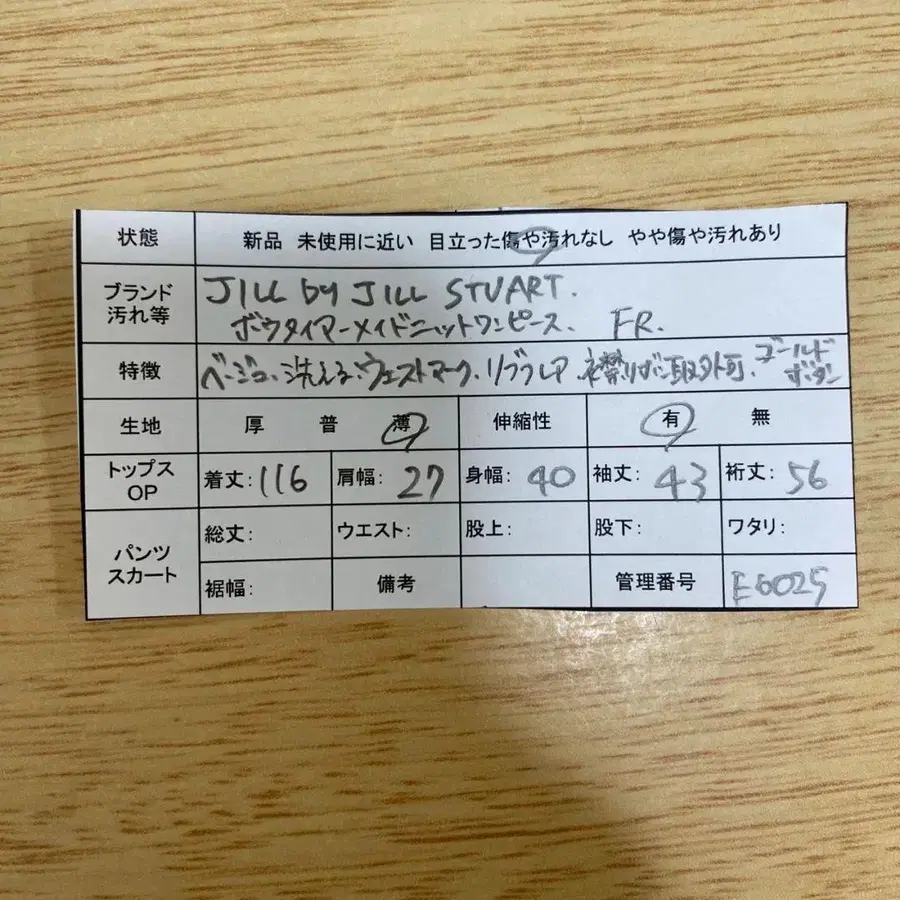 状態 新品 未使用に近い 目立った傷や汚れなし やや傷や汚れあり
ブランド 汚れ等 JILL by JILL STUART.
ボウタイマーメイドニットワンピース、 FR.
特徴 ベージュ、洗える、ウエストマーク、リブフレア、襟リボン取外可、ゴールドボタン
生地 厚 普 薄 伸縮性 有 無
トップス OP 着丈:116 肩幅:27 身幅:40 袖丈:43 裄丈:56
パンツ スカート 総丈: ウエスト: 股上: 股下: ワタリ:
裾幅: 備考 管理番号 E6025